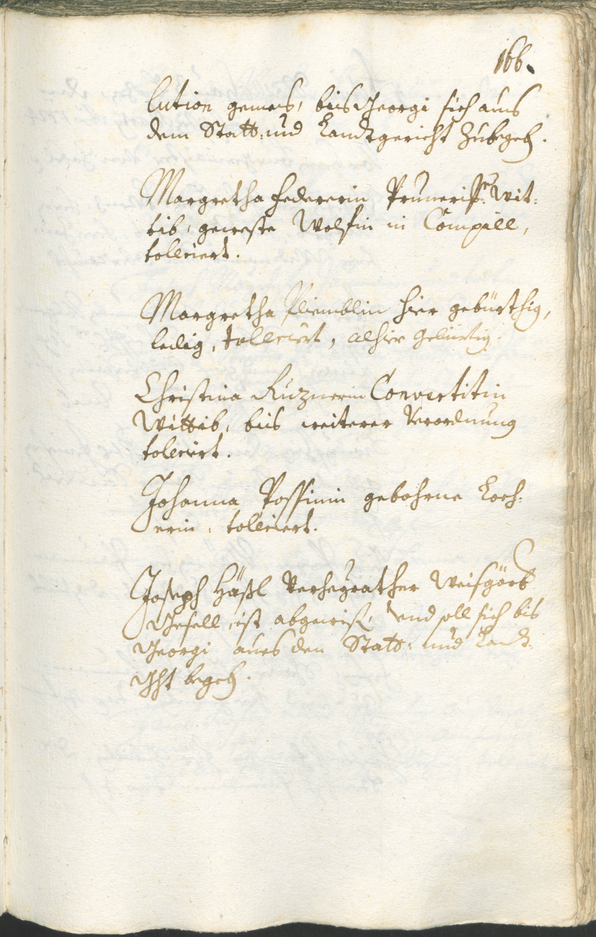 166.
lution gemeß, bis Georgi sich aus
dem Statt: und Landtgericht zubegeb.
Margretha Federerin Prunerisße Wit:
tib, geweste Wolfin in Campill,
tolleriert.
Margretha hier gebürthig,
ledig, tolleriert, alhier gebürtig.
Christina Ruznerin Convertitin
Wittib, bis weiterer Verordnung
toleriert.
Johanna Possinin gebohrne Koch:
erin, tolleriert.
Joseph Häßl Verheÿrather Weisgörb
Gesell, ist abgereist, und soll sich bis
Georgi aus den Statt: und Landt:
Ght begeb.